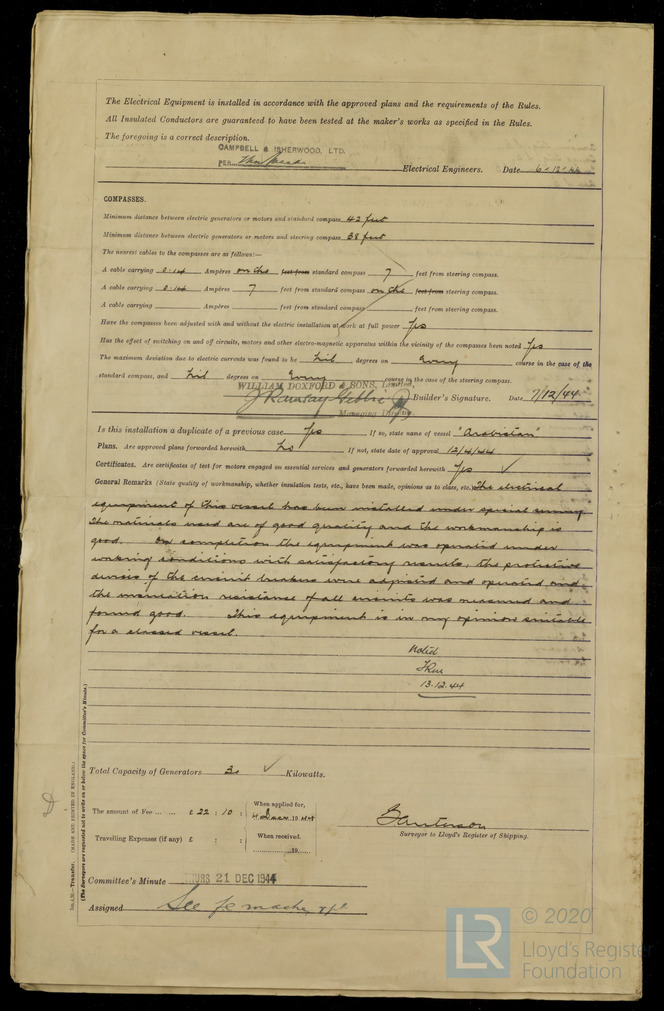 The Electrical Equipment is installed in accordance with the approved plans and the requirements of the Rules.
All Insulated Conductors are guaranteed to have been tested at the maker's works as specified in the Rules.
The foregoing is a correct description.
CAMPBELL & ISHERWOOD, LTD.
PER Electrical Engineers. Date 6-12-44
COMPASSES.
Minimum distance between electric generators or motors and standard compass 42 feet
Minimum distance between electric generators or motors and steering compass 38 feet
The nearest cables to the compasses are as follows:—
A cable carrying 0.14 Ampères on the feet from standard compass 7 feet from steering compass.
A cable carrying 0.14 Ampères 7 feet from standard compass on the feet from steering compass.
A cable carrying Ampères feet from standard compass feet from steering compass.
Have the compasses been adjusted with and without the electric installation at work at full power Yes
Has the effect of switching on and off circuits, motors and other electro-magnetic apparatus within the vicinity of the compasses been noted Yes
The maximum deviation due to electric currents was found to be Nil degrees on Every course in the case of the
standard compass, and Nil degrees on Every course in the case of the steering compass.
WILLIAM DOXFORD & SONS, Limited,
Builder's Signature. Date 7/12/44
Managing Director
Is this installation a duplicate of a previous case Yes If so, state name of vessel "Arabistan"
Plans. Are approved plans forwarded herewith No If not, state date of approval 12/4/44
Certificates. Are certificates of test for motors engaged on essential services and generators forwarded herewith Yes ✓
General Remarks (State quality of workmanship, whether insulation tests, etc., have been made, opinions as to class, etc.) The electrical
equipment of this vessel has been installed under special survey
the materials used are of good quality and the workmanship is
good. On completion the equipment was operated under
working conditions with satisfactory results, the protective
devices of the circuit breakers were adjusted and operated and
the insulation resistance of all circuits was measured and
found good. This equipment is in my opinion suitable
for a classed vessel.
Noted
13.12.44
Total Capacity of Generators 30 ✓ Kilowatts.
The amount of Fee ... ... £ 22 : 10 : When applied for, 19 44
Travelling Expenses (if any) £ : : When received, 19
Surveyor to Lloyd's Register of Shipping.
Committee's Minute THURS 21 DEC 1944
Assigned See
Transfer. (MADE AND PRINTED IN ENGLAND.)
(The Surveyors are requested not to write on or below the space for Committee's Minute.)
LR
© 2020
Lloyd's Register
Foundation